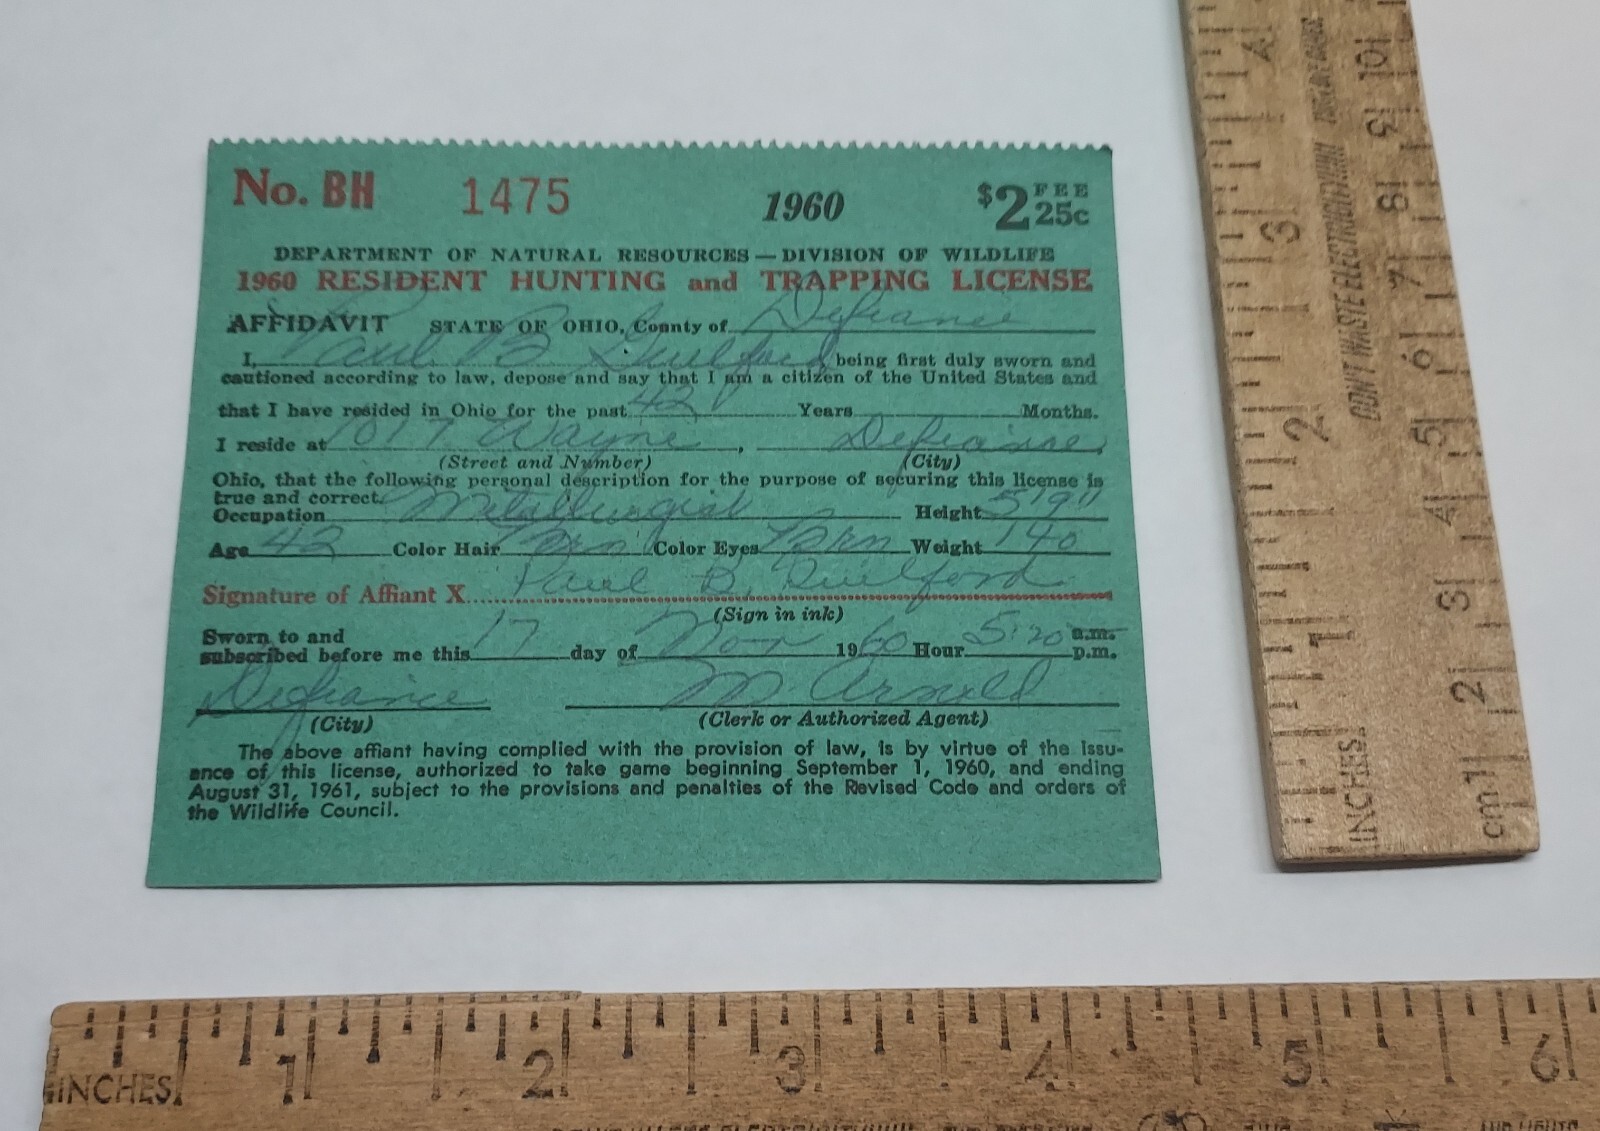 No. BH 1475 1960 $2 FEE 25c
DEPARTMENT OF NATURAL RESOURCES — DIVISION OF WILDLIFE
1960 RESIDENT HUNTING and TRAPPING LICENSE
AFFIDAVIT STATE OF OHIO, County of Defiance
I, Paul B Guilford being first duly sworn and
cautioned according to law, depose and say that I am a citizen of the United States and
that I have resided in Ohio for the past 42 Years Months.
I reside at 1017 Wayne, Defiance,
(Street and Number) (City)
Ohio, that the following personal description for the purpose of securing this license is
true and correct.
Occupation Metallurgist Height 5'9"
Age 42 Color Hair Brn Color Eyes Brn Weight 140
Signature of Affiant X Paul B. Guilford
(Sign in ink)
Sworn to and
subscribed before me this 17 day of Nov 1960 Hour 5:20 a.m. p.m.
Defiance M. Arnold
(City) (Clerk or Authorized Agent)
The above affiant having complied with the provision of law, is by virtue of the issu-
ance of this license, authorized to take game beginning September 1, 1960, and ending
August 31, 1961, subject to the provisions and penalties of the Revised Code and orders of
the Wildlife Council.
INCHES 1 2 3 4
cm 1 2 3 4 5 6 7 8 9 10
DON'T WASTE ELECTRICITY!!!!
INCHES 1 2 3 4 5 6